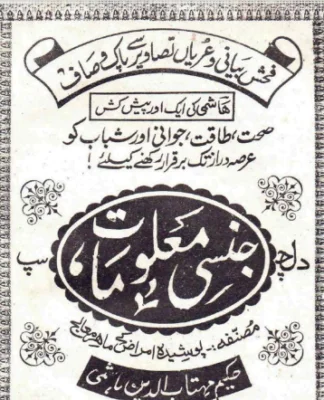 فحش بیانی و عریاں تصاویر سے پاک و صاف
ہاشمی کی ایک اور پیش کش
صحت، طاقت، جوانی اور شباب کو
عرصہ دراز تک برقرار رکھنے کیلئے !
دلچسپ
جنسی معلومات
مصنفہ:۔ پوشیدہ امراض کے ماہر معالج
حکیم مہتاب الدین ہاشمی